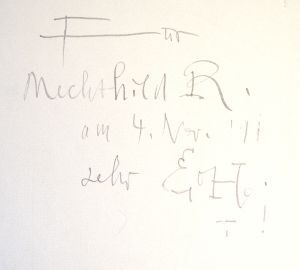 Für
Mechthild R.
am 4. Nov. '91
sehr